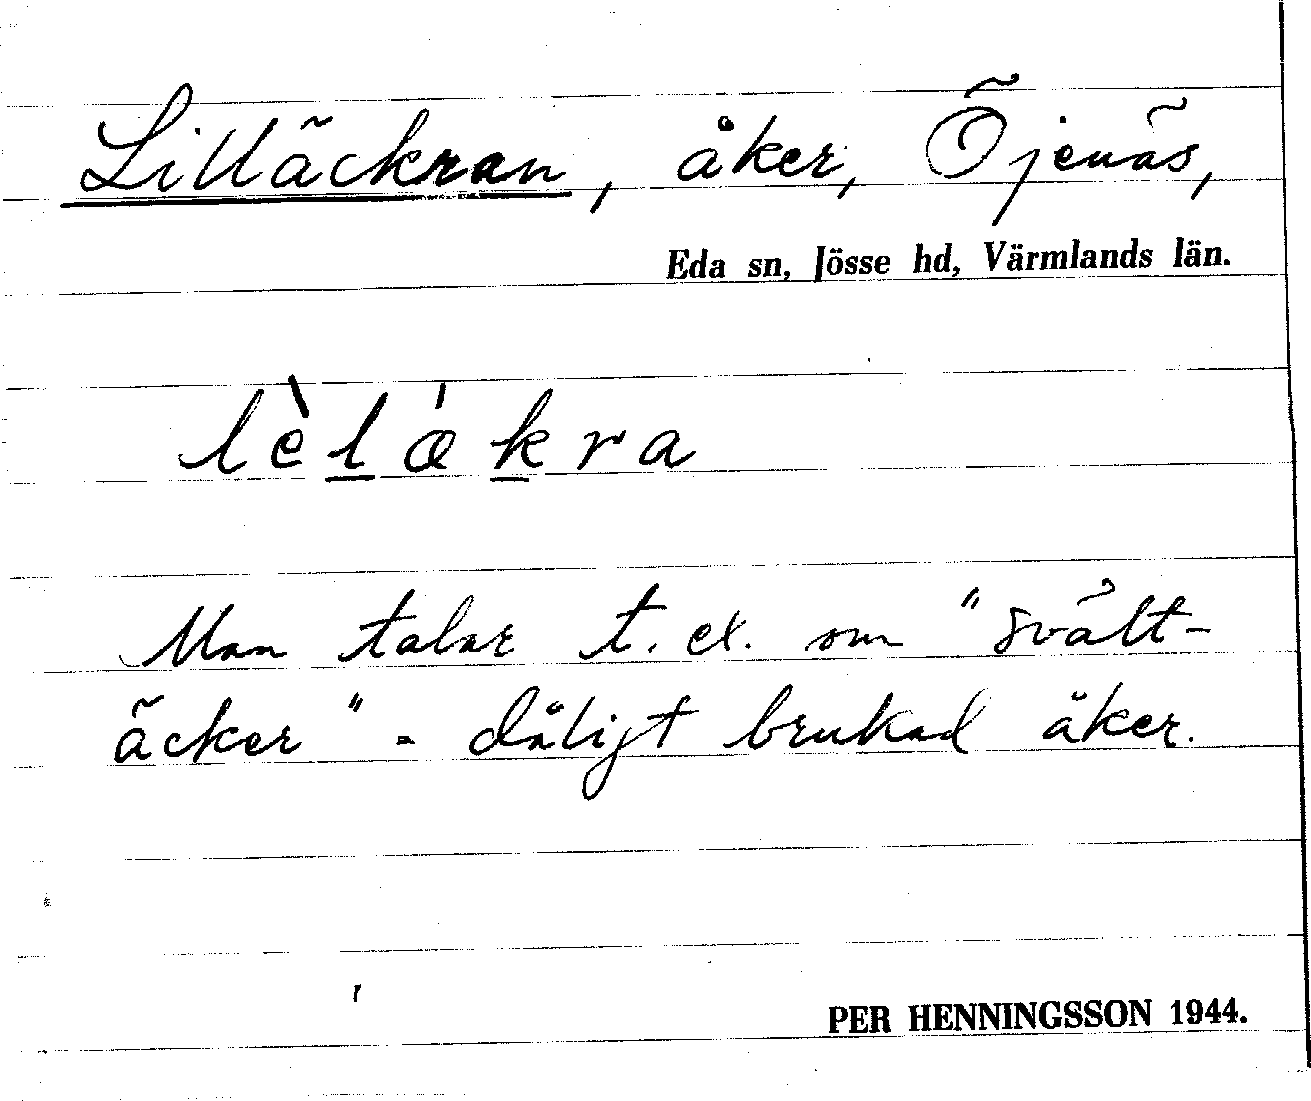 Lilläckran, åker, Öjenäs,
Eda sn, Jösse hd, Värmlands län.
lèlǽkra
Man talar t. ex. om "svält-
äcker" = dåligt brukad åker.
PER HENNINGSSON 1944.